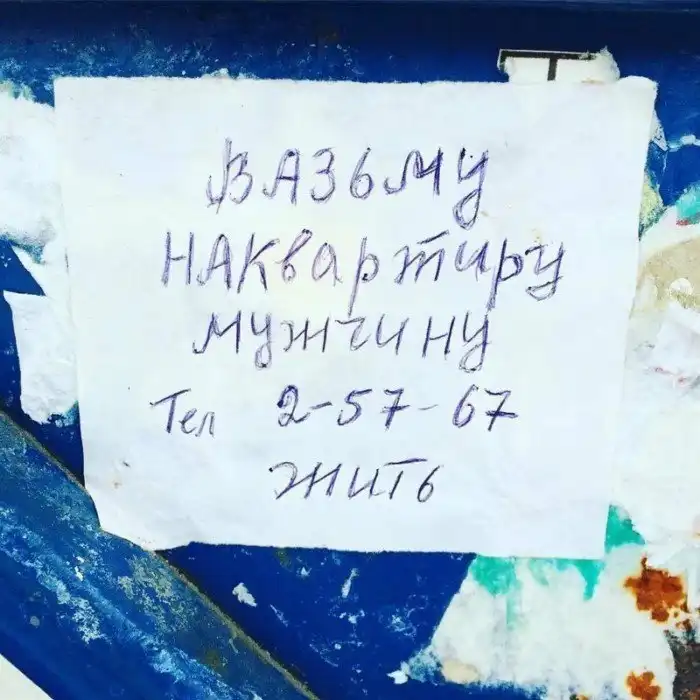 ВАЗЬМУ
НАКвартиру
мужчину
Тел 2-57-67
жить